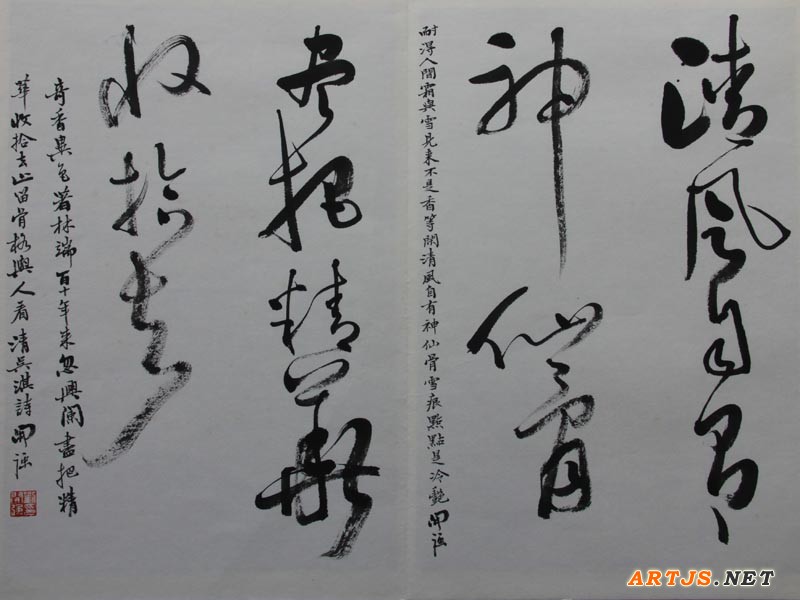 清風自有
神仙骨
耐得人間霜與雪見来不是香等閑清風自有神仙骨雪痕點點是冷艷
盡把精華
收拾去
奇香異色著林端百十年来忽興闌盡把精
華收拾去止留骨格與人看清吳淇詩
ARTJS.NET